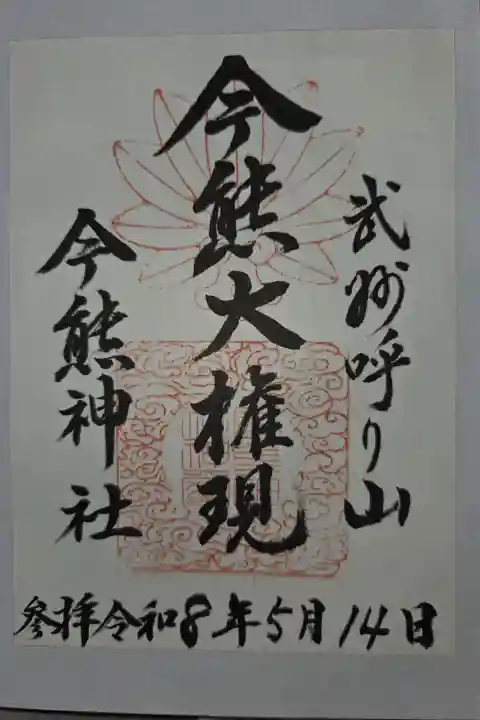 武州呼り山
今熊大権現
今熊神社
参拝令和8年5月14日